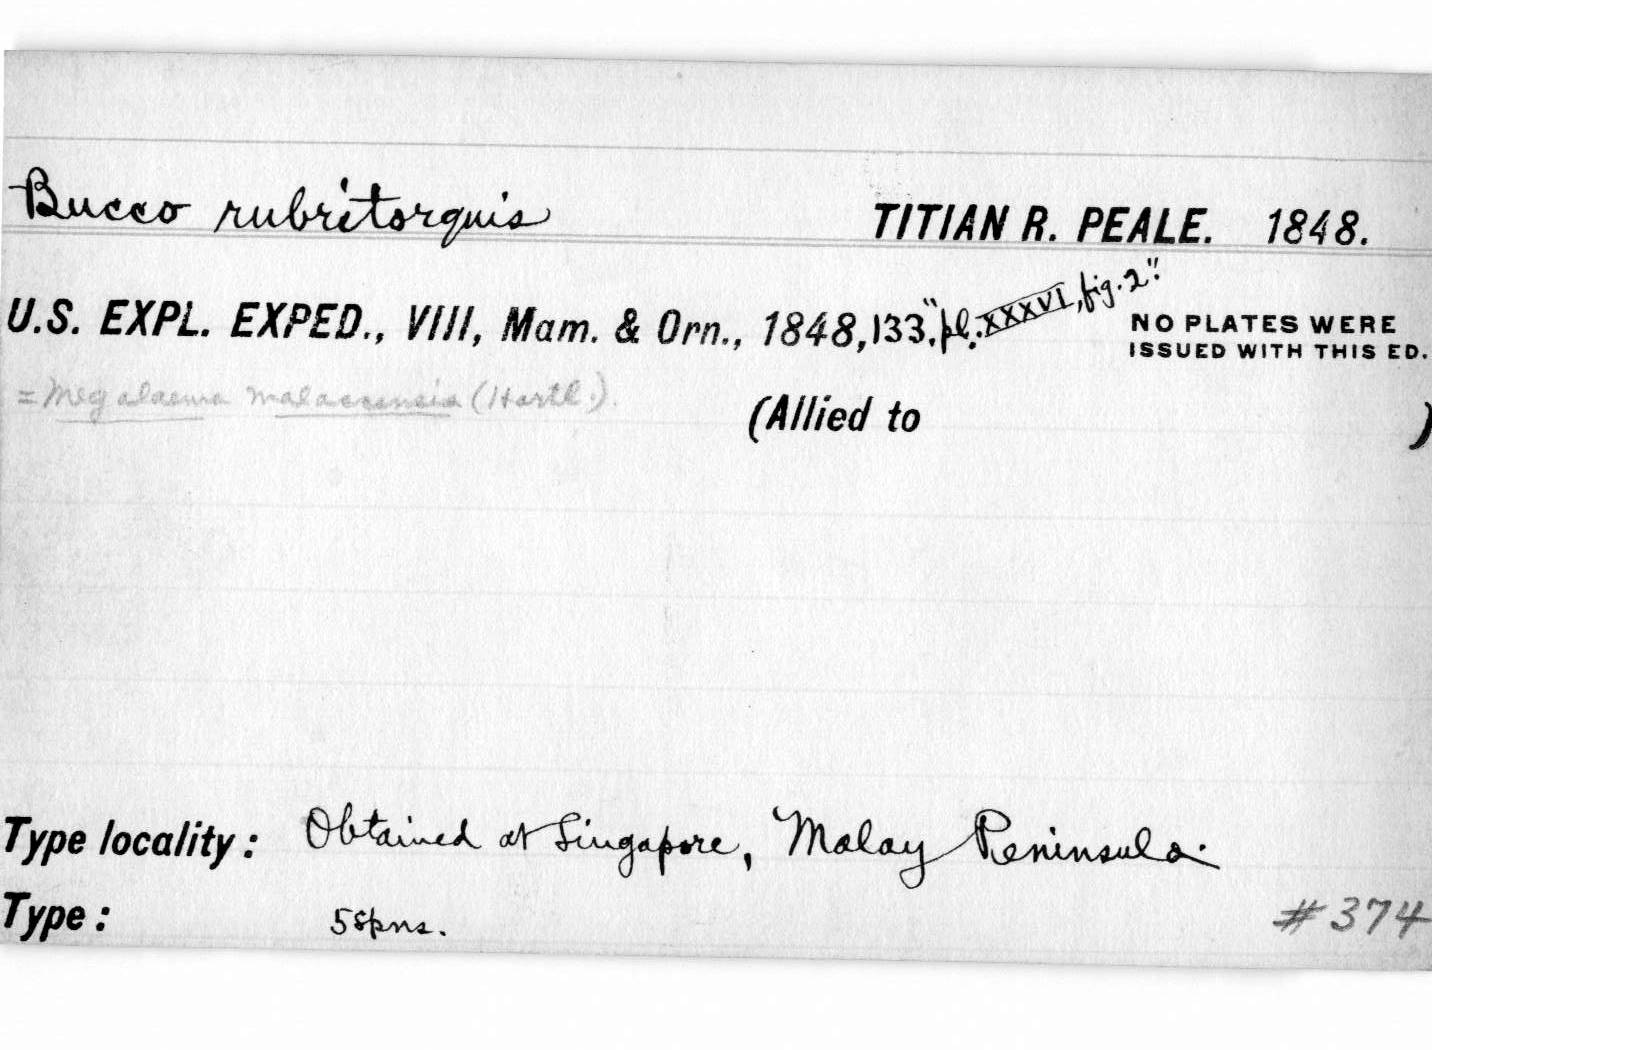 Bucco rubritorquis TITIAN R. PEALE. 1848.
U.S. EXPL. EXPED., VIII, Mam. & Orn., 1848, 133, "pl. XXXVI, fig. 2".
NO PLATES WERE
ISSUED WITH THIS ED.
= Megalaema malaccensis (Hartl.).
(Allied to )
Type locality: Obtained at Singapore, Malay Peninsula.
Type: 5 spns.
#374